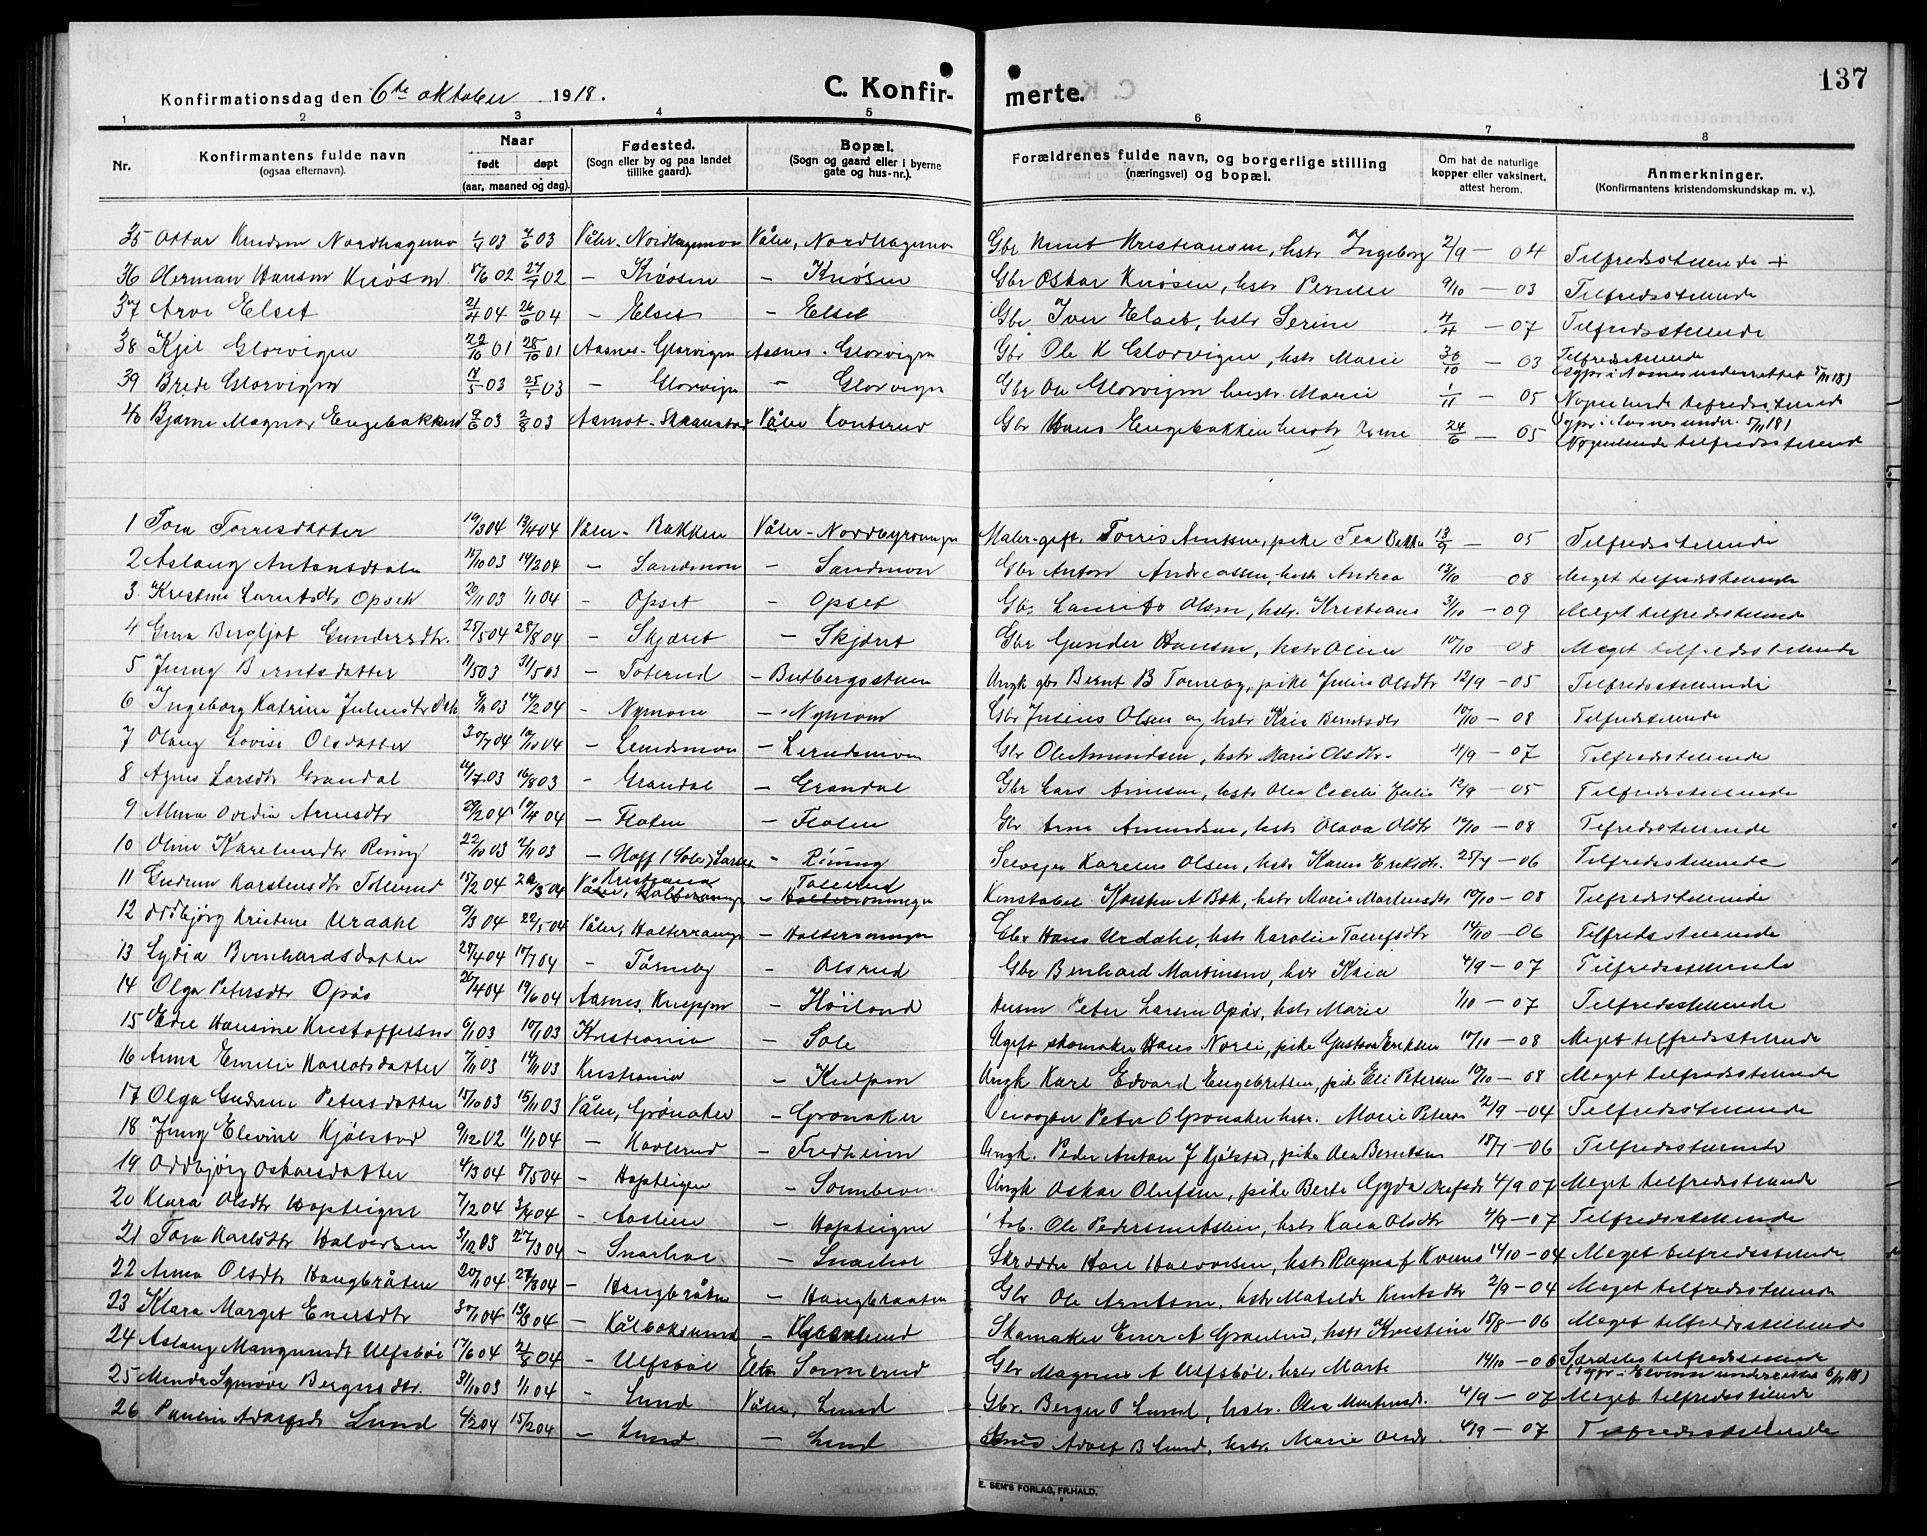 137
Konfirmationsdag den 6te oktober 1918.
C. Konfir-
merte.
1 2 3 4 5 6 7 8
Nr.
Konfirmantens fulde navn
(ogsaa efternavn).
Naar
født døpt
(aar, maaned og dag).
Fødested.
(Sogn eller by og paa landet
tillike gaard).
Bopæl.
(Sogn og gaard eller i byerne
gate og hus-nr.).
Forældrenes fulde navn, og borgerlige stilling
(næringsvei) og bopæl.
Om hat de naturlige
kopper eller vaksinert,
attest herom.
Anmerkninger.
(Konfirmantens kristendomskundskap m. v.).
35 Ottar Knudsen Nordhagemo 03 7/6 03 Våler - Nordhagemoen Våler, Nordhagemo Gbr Knut Kristiansen, hstr Ingeborg 2/9 - 04 Tilfredsstillende +
36 Herman Hansen Knøsen 02 02 - Knøsen - Knøsen Gbr Oskar Knøsen, hstr 9/10 - 03 Tilfredsstillende
37 Arve Elset 2/4 04 26/6 04 - Elset - Elset Gbr Iver Elset, hstr Serine 4/4 - 07 Tilfredsstillende
38 Kjel Glorvigen 22/10 01 28/10 01 Aasnes - Glorvigen Aasnes - Glorvigen Gbr Ole K Glorvigen, hstr Marie 30/10 - 03 Tilfredsstillende
(Spr i Aasnes underrettet 5/11 18)
39 Brede Glorvigen 03 25/5 03 - Glorvigen - Glorvigen Gbr Ole Glorvigen hustr. Marie 1/11 - 05 Nogenlunde tilfredsstillende
(Spr i Aasnes under. 5/11 18)
40 Bjarne Magnar Engebakken 9/6 03 2/8 03 Aamot - Våler Gbr Hans Engebakken hustr 24/6 - 05 Nogenlunde tilfredsstillende
1 Tora Torrisdatter 19/3 04 13/4 04 Våler - Bakken Våler - Nordbyroningen Maler-gift. Torris Arntsen, pike Tea Bakke 13/9 - 05 Tilfredsstillende
2 Aslaug Antonsdatter 11/10 03 14/2 04 - Sandmon - Sandmon Gbr Anton Andreassen, hstr Andrea 12/10 - 08 Meget tilfredsstillende
3 Kristine Lauritsdtr Opset 20/11 03 1/1 04 - Opset - Opset Gbr Laurits Olsen, hstr. Kristiane 3/10 - 09 Meget tilfredsstillende
4 Guna Bergljot Gundersdtr. 25/5 04 28/8 04 - Skjæret - Skjæret Gbr Gunder Hansen, hstr Oline 10/10 - 08 Meget tilfredsstillende
5 Jenny Berntsdatter 11/5 03 31/5 03 - Toterud - Butbergsstuen Ungk gbr Bernt B Torneby, pike Julie Olsdtr 12/9 - 05 Tilfredsstillende
6 Ingeborg Katrine Juliusdtr 03 14/2 04 - Nymoen - Nymoen Gbr Julius Olsen og hstr Kaia Berntsdtr 10/10 - 08 Tilfredsstillende
7 Olaug Lovise Olsdatter 30/7 04 10/10 04 - Lundsmoen - Lundsmoen Gbr Ole Amundsen, hstr Marie Olsdtr. 4/9 - 07 Tilfredsstillende
8 Agnes Larsdtr Grandal 14/7 03 16/8 03 - Grandal - Grandal Gbr Lars Arnesen, hstr Olea Cecilie Julie 12/9 - 05 Tilfredsstillende
9 Alma Ovedia Arnesdtr 29/2 04 10/4 04 - Floten - Floten Gbr Arne Amundsen, hstr Olava Olsdtr 10/10 - 08 Tilfredsstillende
10 Oline Karelusdtr Rünig 22/10 03 2/11 03 - Hoff (Solør) - Rünig Selveier Karelus Olsen, hstr Karen Eriksdtr. 25/7 - 06 Tilfredsstillende
11 Gudrun Karstensdtr Tollerud 15/2 04 3 04 Kristiania Tollerud Konstabel Karsten A Bak, hstr Marie Martinsdtr 10/10 - 08 Tilfredsstillende
12 Oddbjørg Kristine Urdahl 9/3 04 22/5 04 Våler, Halterroningen - Halterroningen Gbr Hans Urdahl, hstr Karoline 14/10 - 06 Tilfredsstillende
13 Lydia Bernhardsdatter 28/4 04 17/7 04 - Törneby - Olsrud Gbr Bernhard Martinsen, hstr Kaia 4/9 - 07 Tilfredsstillende
14 Olga Petersdtr Opås 26/4 04 19/6 04 Aasnes, Kneppen - Höiland Peter Larsen Opås, hstr Marie 1/10 - 07 Tilfredsstillende
15 Edle Hansine Kristoffersen 6/1 03 10/1 03 Kristiania - Sole Ugift skomaker Hans Norli, pike Gustava Eriksen 10/10 - 08 Meget tilfredsstillende
16 Anna Emilie Karlotsdatter 7/11 03 14/11 03 Kristiania - Ungk Karl Edvard Engebretsen, pike Eli Petersen 10/10 - 08 Meget tilfredsstillende
17 Olga Gudrun Petersdatter 15/10 03 15/11 03 Våler, Grønaker - Grønaker Peter O Grønaker hstr. Marie Peters 2/9 - 04 Tilfredsstillende
18 Jenny Elevine Kjölstad 9/12 02 11/1 04 - Haverud - Fredheim Ungk. Peder Anton J Kjölstad, pike Olea Berntsen 18/7 - 06 Tilfredsstillende
19 Oddbjörg Oskarsdatter 4/3 04 8/5 04 - Hopteigen - Ungk Oskar Olufsen, pike Berte Gyda 4/9 07 Meget tilfredsstillende
20 Klara Olsdtr Hopteigen 7/2 04 3/4 04 - Aaslien - Hopteigen Arb. Ole Pedersen Aslien, hstr Kaia Olsdtr 4/9 - 07 Tilfredsstillende
21 Tora Karlsdtr Halvorsen 3/12 03 27/3 04 - Snarhol - Snarhol Skrædder Karl Halvorsen, hstr Ragna J Kvens 14/10 - 04 Meget tilfredsstillende
22 Anna Olsdtr Haugbråten 20/1 04 27/3 04 - Haugbråten - Haugbraaten Gbr Ole Arntsen, hstr Matilde Knutsdtr 2/9 - 04 Meget tilfredsstillende
23 Klara Marget Enersdtr 30/1 04 13/3 04 - Kålboksund - Skomaker Ener A Granlund, hstr Kristine 15/8 - 06 Meget tilfredsstillende
24 Aslaug Magnusdtr Ulfsböl 17/6 04 2/8 04 - Ulfsböl Elv. Sonnerud Gbr Magnus A Ulfsböl, hstr Marte 14/10 - 06 Særdeles tilfredsstillende
(Spr i Elverum underrettet 6/11 18)
25 Minda Synnöve Bergersdtr. 31/10 03 1/1 04 - Lund Våler, Lund Gbr. Berger O Lund, hstr. Olea Martinsd. 4/9 - 07 Meget tilfredsstillende
26 Pauline Adolfsdtr Lund 4/2 04 15/2 04 - Lund - Lund Adolf B Lund, hstr Marie Olsdtr 4/9 - 07 Tilfredsstillende
E. SEM'S FORLAG, FR.HALD.